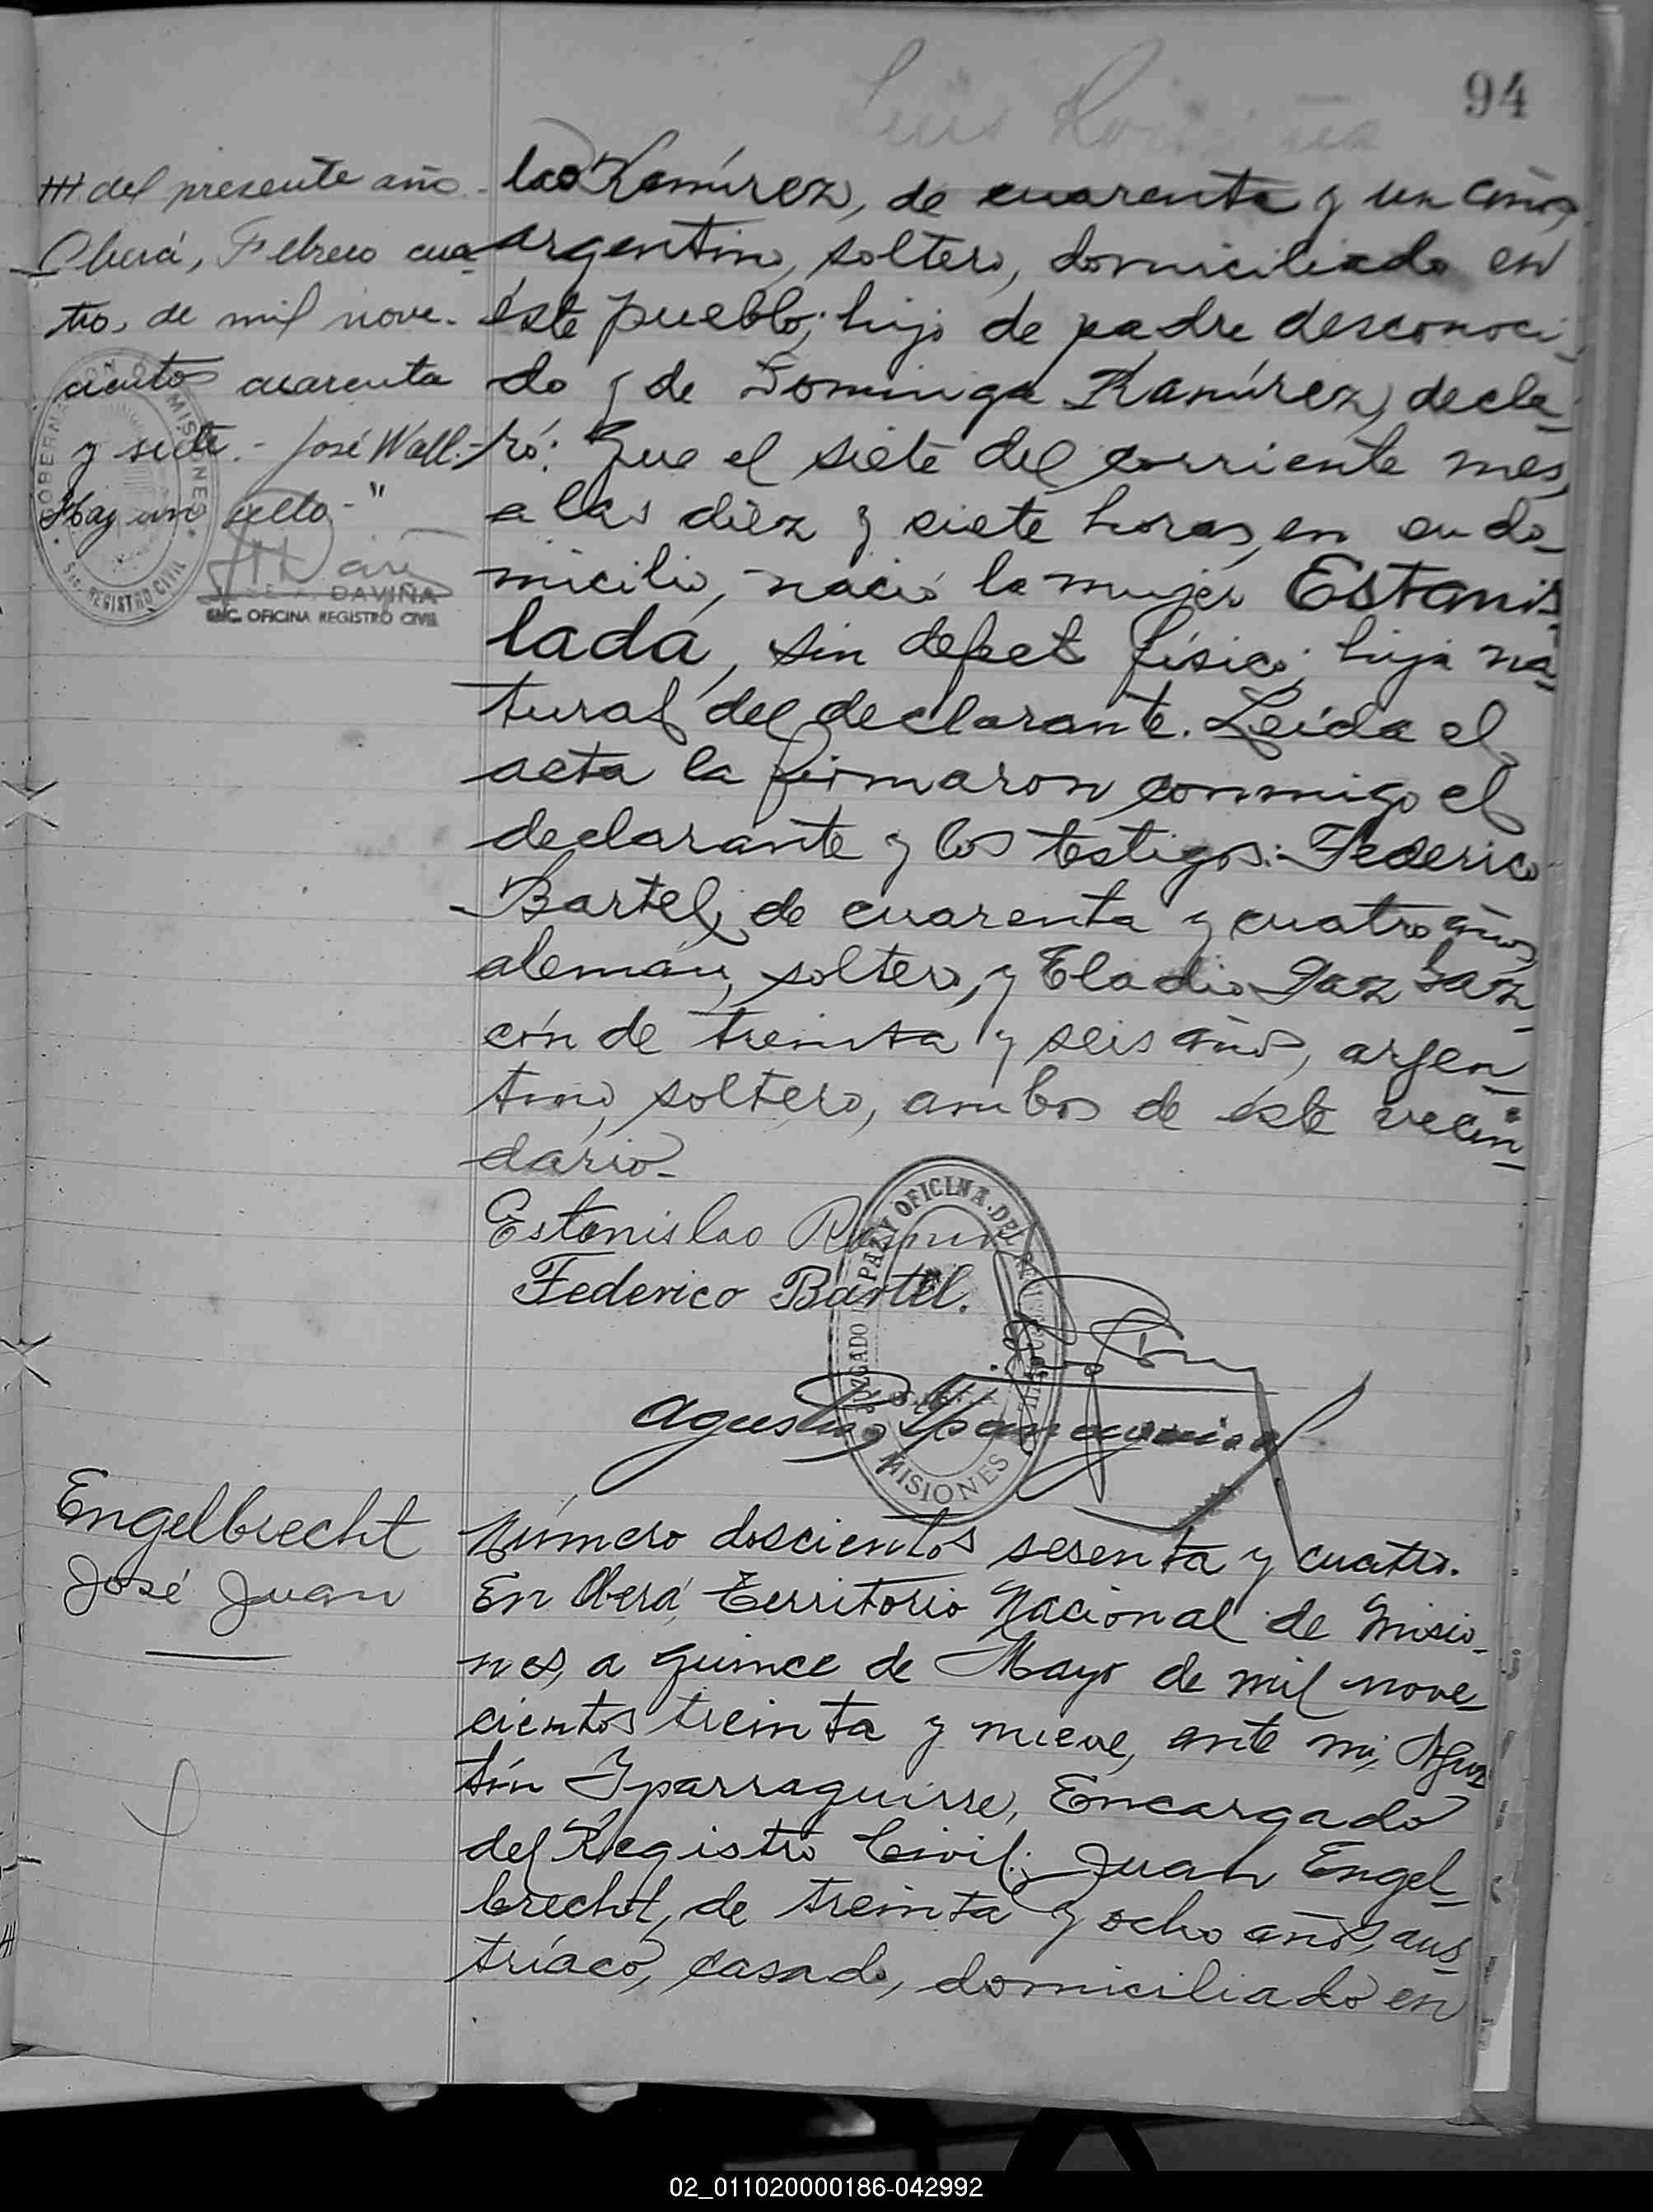 94
Luis
/// del presente año.-
Oberá, Febrero cua-
tro, de mil nove-
cientos cuarenta
y siete.- José Wall.-
Hay un sello-"
GOBERNACION DE MISIONES
SIC. REGISTRO CIVIL
DAVIÑA
ENC. OFICINA REGISTRO CIVIL
lao Ramírez, de cuarenta y un años,
argentino, soltero, domiciliado en
éste pueblo; hijo de padre desconoci-
do y de Dominga Ramírez, decla-
ró: Que el siete del corriente mes,
a las diéz y siete horas, en su do-
micilio, nació la mujer Estanis
lada, sin defect físico; hija na-
tural del declarante. Leída el
acta la firmaron conmigo el
declarante y los testigos:- Federico
Bartel, de cuarenta y cuatro años,
alemán, soltero, y Eladio Paz
cón de treinta y seis años, argen-
tino, soltero, ambos de éste vecin-
dario-
Estanislao Ramirez
Federico Bartel.
JUZGADO DE PAZ Y OFICINA DEL
MISIONES
Agustin Yparraguirre
Engelbrecht
José Juan
Número doscientos sesenta y cuatro.
En Oberá, Territorio Nacional de Misio-
nes, a quince de Mayo de mil nove-
cientos treinta y nueve, ante mi, Agus
tín Yparraguirre, Encargado
del Registro Civil; Juan Engel-
brecht, de treinta y ocho años, aus-
tríaco, casado, domiciliado en
02_011020000186-042992